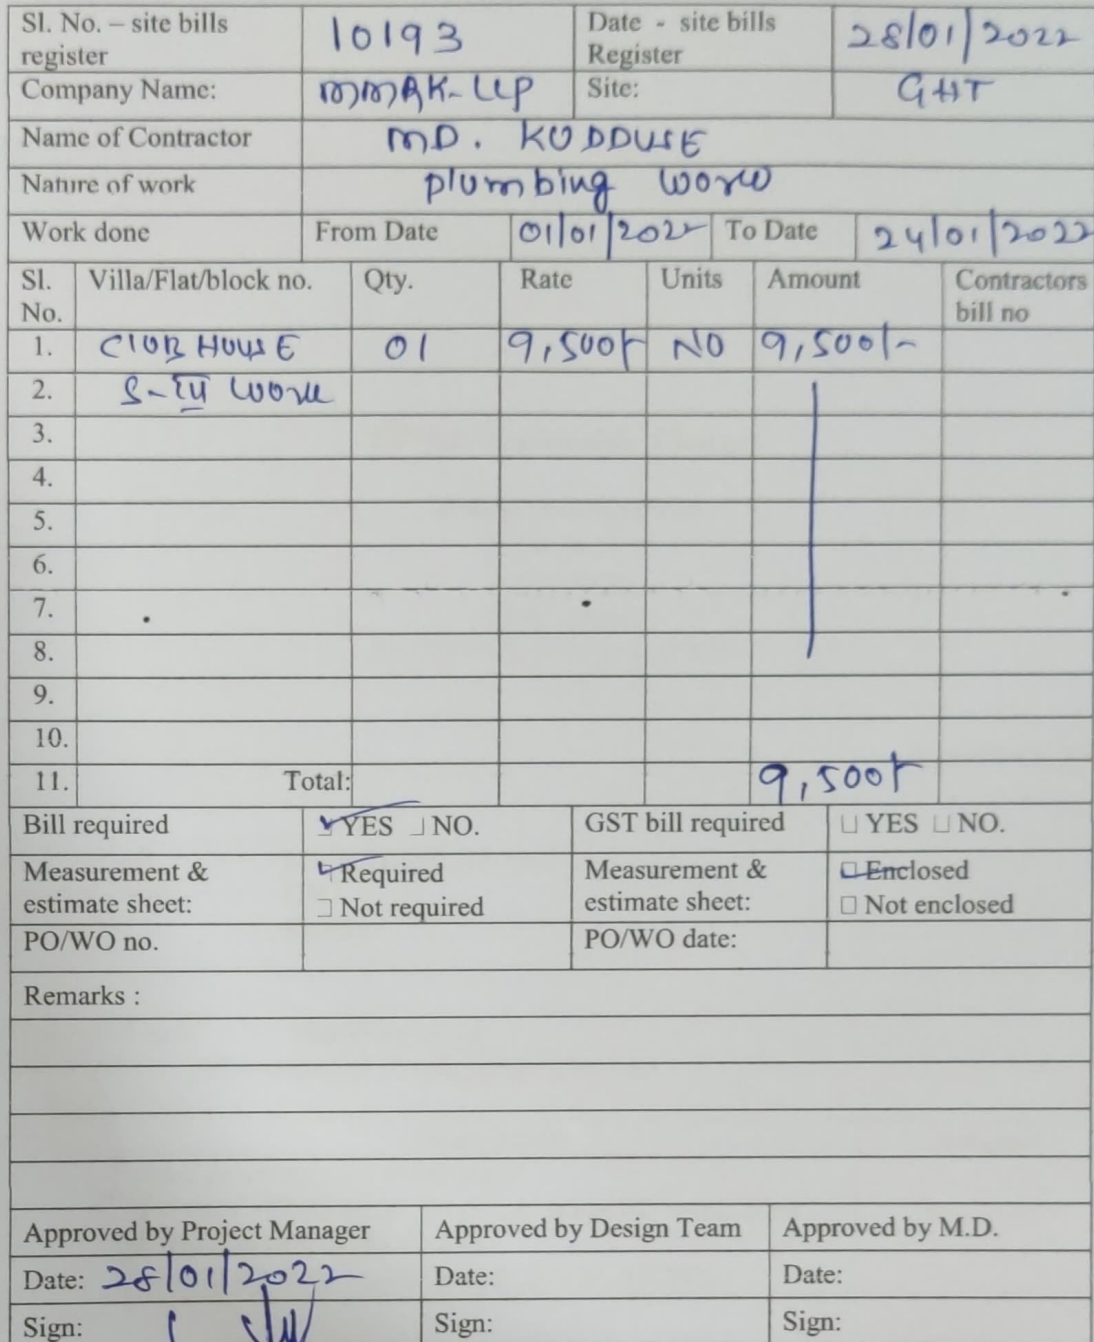 Sl. No. – site bills register 10193 Date - site bills Register 28/01/2022
Company Name: MMRK-LLP Site: GHT
Name of Contractor MD. KUDDUSE
Nature of work plumbing work
Work done From Date 01/01/2022 To Date 24/01/2022
Sl. No. Villa/Flat/block no. Qty. Rate Units Amount Contractors bill no
1. CLUB HOUSE 01 9,500/- NO 9,500/-
2. S-III work
3.
4.
5.
6.
7.
8.
9.
10.
11. Total: 9,500/-
Bill required ☑ YES ☐ NO. GST bill required ☐ YES ☐ NO.
Measurement & estimate sheet: ☑ Required ☐ Not required Measurement & estimate sheet: ☑ Enclosed ☐ Not enclosed
PO/WO no. PO/WO date:
Remarks :
Approved by Project Manager Approved by Design Team Approved by M.D.
Date: 28/01/2022 Date: Date:
Sign: Sign: Sign: